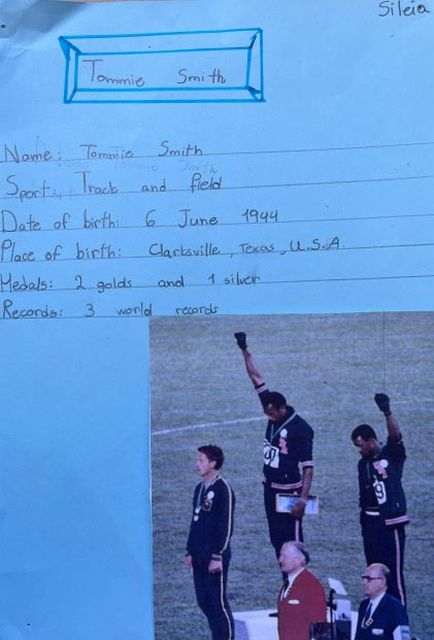 Sileia
Tommie Smith
Name: Tommie Smith
Sport: Track and field
Date of birth: 6 June 1944
Place of birth: Clarksville, Texas, U.S.A
Medals: 2 golds and 1 silver
Records: 3 world records